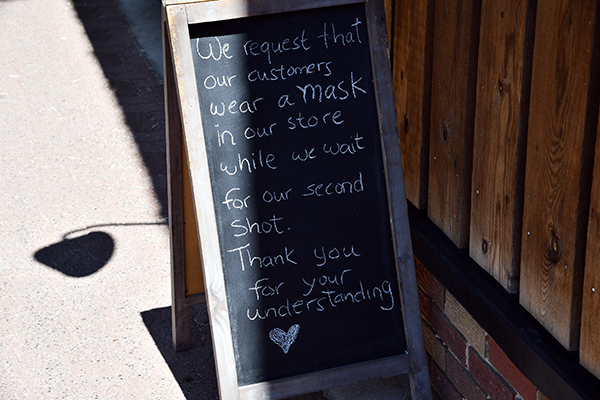 We request that
our customers
wear a mask
in our store
while we wait
for our second
shot.
Thank you
for your
understanding